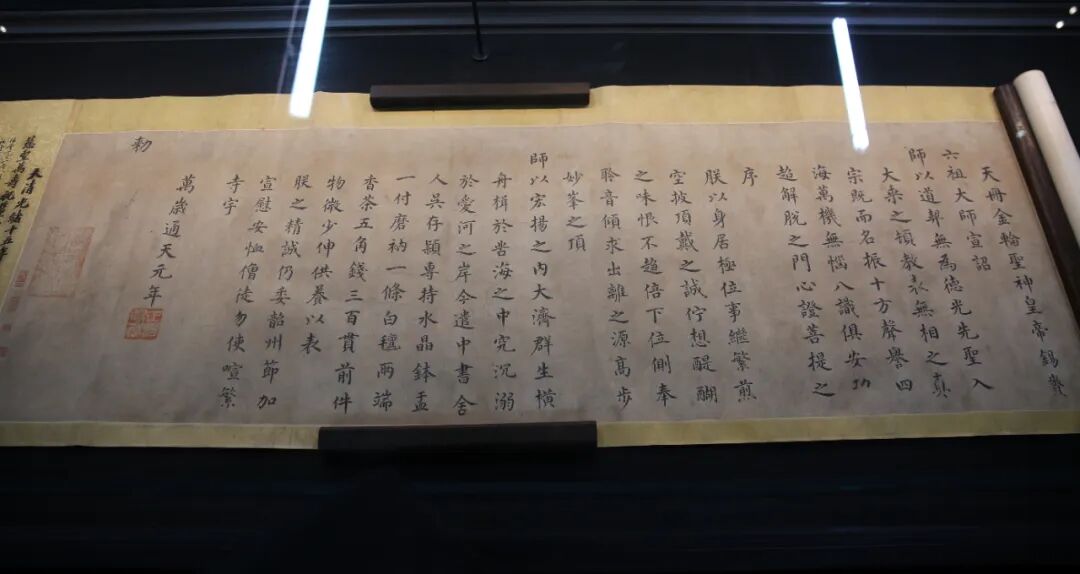 天冊金輪聖神皇帝錫賚
六祖大師宣詔
師以道契無為德光先聖入
大乘之頓教表無相之真
宗既而名振十方聲譽四
海萬機無惱八識俱安功
超解脫之門心證菩提之
序
朕以身居極位事繼繁煎
空披頂戴之誠佇想醍醐
之味恨不趨倍下位側奉
聆音傾求出離之源高步
妙峯之頂
師以宏揚之內大濟群生橫
舟楫於苦海之中究沉溺
於愛河之岸今遣中書舍
人吳存穎專持水晶鉢盂
一付磨衲一條白氈兩端
香茶五角錢三百貫前件
物微少伸供養以表
朕之精誠仍委韶州節加
宣慰安恤僧徒勿使喧繁
寺宇
萬歲通天元年
勅
大清光緒十五年
慈聖萬壽祝